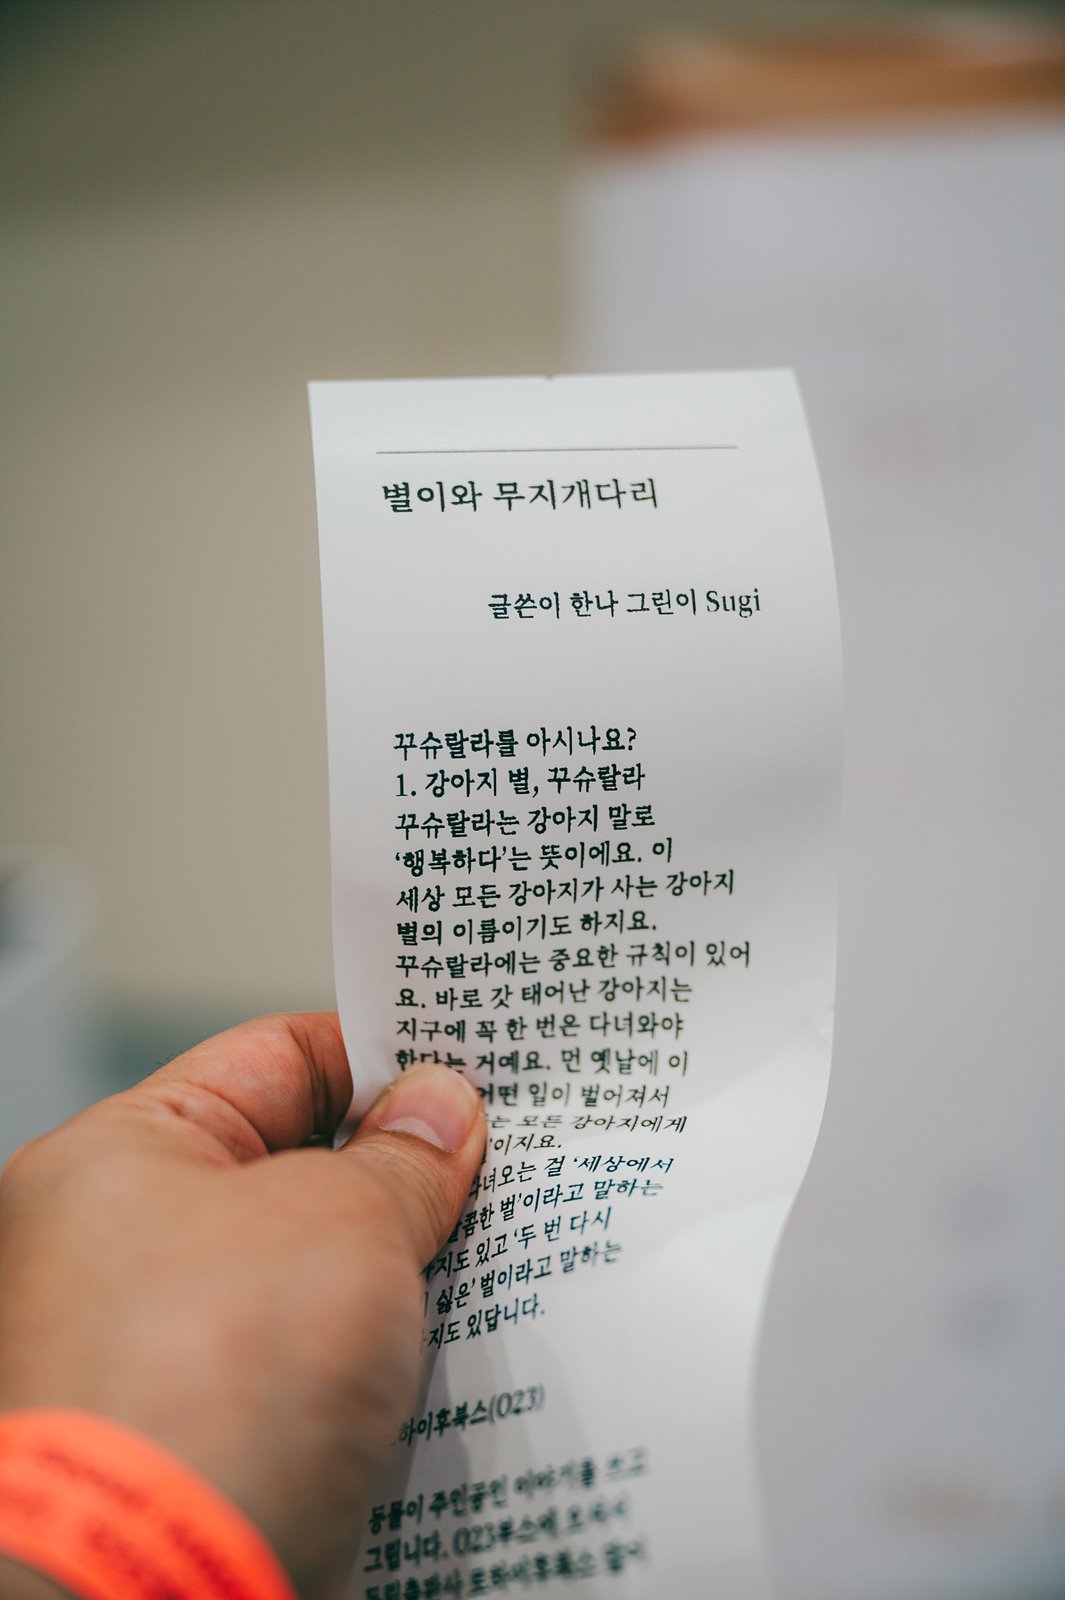 별이와 무지개다리
글쓴이 한나 그린이 Sugi
꾸슈랄라를 아시나요?
1. 강아지 별, 꾸슈랄라
꾸슈랄라는 강아지 말로
‘행복하다’는 뜻이에요. 이
세상 모든 강아지가 사는 강아지
별의 이름이기도 하지요.
꾸슈랄라에는 중요한 규칙이 있어
요. 바로 갓 태어난 강아지는
지구에 꼭 한 번은 다녀와야
한다는 거예요. 먼 옛날에 이
어떤 일이 벌어져서
는 모든 강아지에게
이지요.
다녀오는 걸 ‘세상에서
달콤한 벌’이라고 말하는
지도 있고 ‘두 번 다시
싫은’ 벌이라고 말하는
지도 있답니다.
하이후북스(O23)
동물이 주인공인 이야기를 쓰고
그립니다. O23부스에